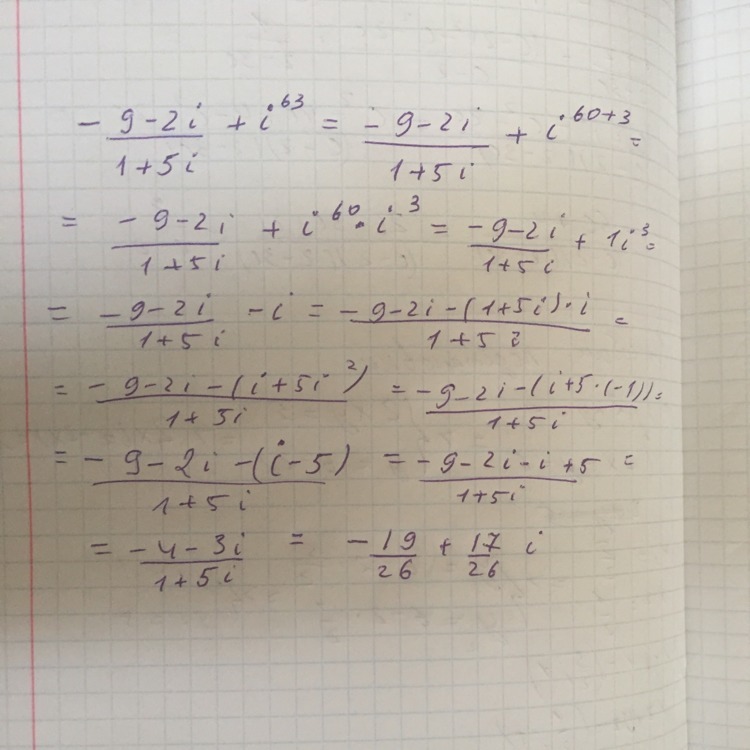 -9-2i/1+5i + i^63 = -9-2i/1+5i + i^60+3 =
= -9-2i/1+5i + i^60 · i^3 = -9-2i/1+5i + 1i^3 =
= -9-2i/1+5i - i = -9-2i-(1+5i)·i/1+5i =
= -9-2i-(i+5i^2)/1+5i = -9-2i-(i+5·(-1))/1+5i =
= -9-2i-(i-5)/1+5i = -9-2i-i+5/1+5i =
= -4-3i/1+5i = -19/26 + 17/26 i